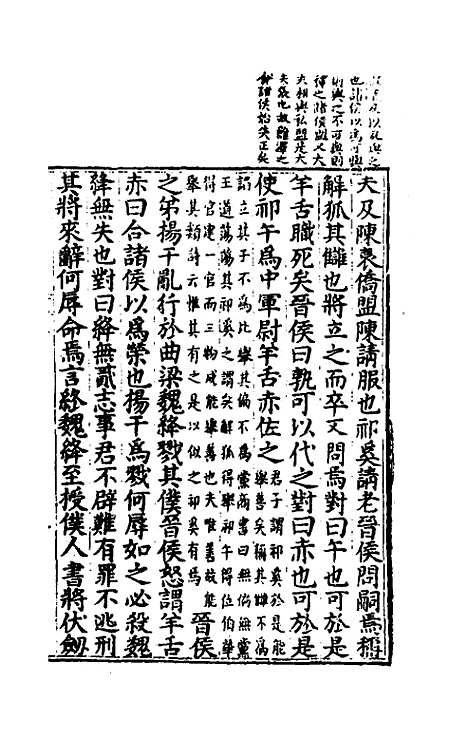 及以及與之
也諸侯以為可與
則與之不可與則
釋之諸侯盟又大
夫相與私盟是大
夫張也故雞澤之
會諸侯始失正矣
夫及陳袁僑盟陳請服也祁奚請老晉侯問嗣焉稱
解狐其讎也將立之而卒又問焉對曰午也可於是
羊舌職死矣晉侯曰孰可以代之對曰赤也可於是
使祁午為中軍尉羊舌赤佐之
君子謂祁奚於是能
舉善矣稱其讎不為
諂立其子不為比舉其偏不為黨商書曰無偏無黨
王道蕩蕩其祁奚之謂矣解狐得舉祁午得位伯華
得官建一官而三物成能舉善也夫唯善故能
舉其類詩云惟其有之是以似之祁奚有焉
晉侯
之弟揚干亂行於曲梁魏絳戮其僕晉侯怒謂羊舌
赤曰合諸侯以為榮也揚干為戮何辱如之必殺魏
絳無失也對曰絳無貳志事君不辟難有罪不逃刑
其將來辭何辱命焉言終魏絳至授僕人書將伏劍